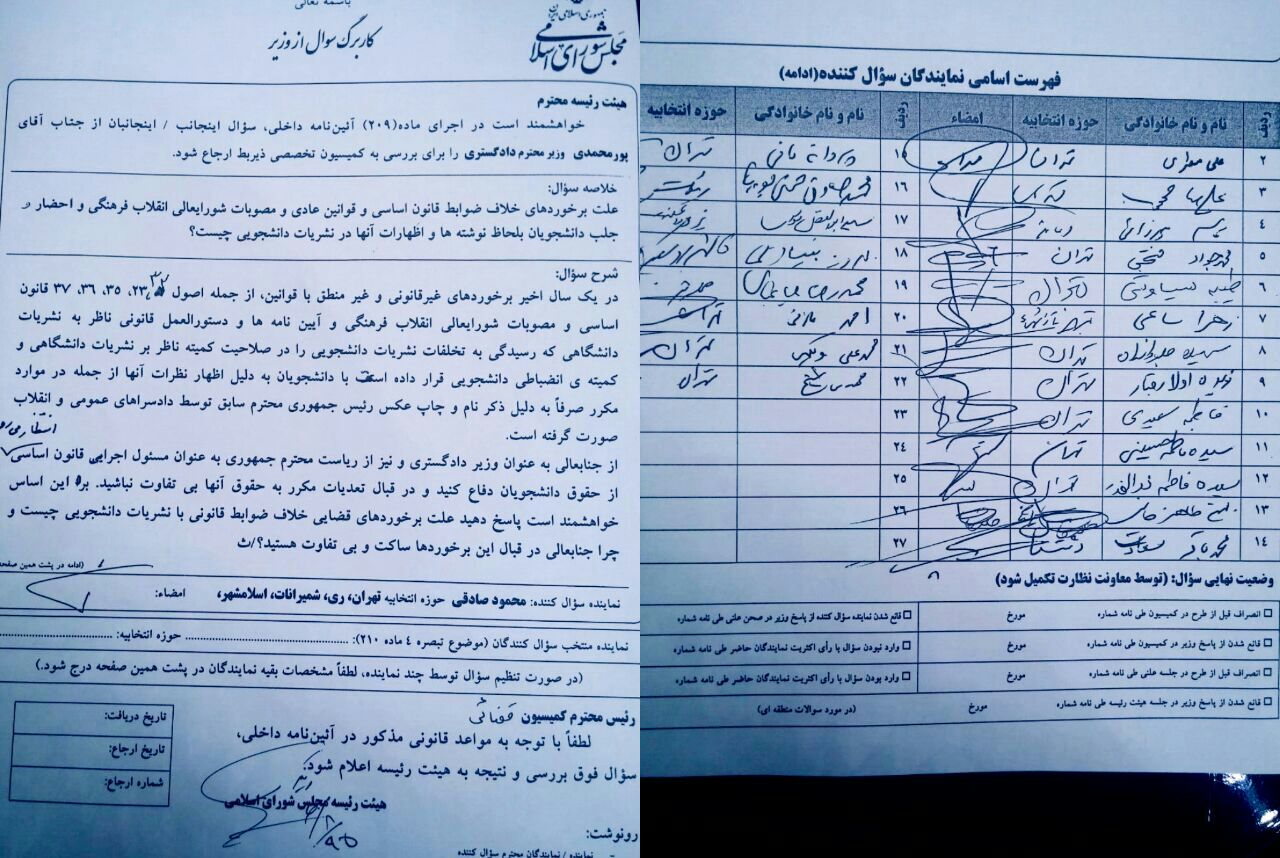 باسمه تعالی
جمهوری اسلامی ایران
مجلس شورای اسلامی
کاربرگ سوال از وزیر
هیئت رئیسه محترم
خواهشمند است در اجرای ماده(۲۰۹) آئین‌نامه داخلی، سؤال اینجانب / اینجانبان از جناب آقای
پورمحمدی وزیر محترم دادگستری را برای بررسی به کمیسیون تخصصی ذیربط ارجاع شود.
خلاصه سؤال:
علت برخوردهای خلاف ضوابط قانون اساسی و قوانین عادی و مصوبات شورایعالی انقلاب فرهنگی و احضار و
جلب دانشجویان بلحاظ نوشته ها و اظهارات آنها در نشریات دانشجویی چیست؟
شرح سؤال:
در یک سال اخیر برخوردهای غیرقانونی و غیر منطق با قوانین، از جمله اصول ۲۳، ۳۵، ۳۶، ۳۷ قانون
اساسی و مصوبات شورایعالی انقلاب فرهنگی و آیین نامه ها و دستورالعمل قانونی ناظر به نشریات
دانشگاهی که رسیدگی به تخلفات نشریات دانشجویی را در صلاحیت کمیته ناظر بر نشریات دانشگاهی و
کمیته ی انضباطی دانشجویی قرار داده است با دانشجویان به دلیل اظهار نظرات آنها از جمله در موارد
مکرر صرفاً به دلیل ذکر نام و چاپ عکس رئیس جمهوری محترم سابق توسط دادسراهای عمومی و انقلاب
صورت گرفته است.
انتظار می رو
از جنابعالی به عنوان وزیر دادگستری و نیز از ریاست محترم جمهوری به عنوان مسئول اجرایی قانون اساسی
از حقوق دانشجویان دفاع کنید و در قبال تعدیات مکرر به حقوق آنها بی تفاوت نباشید. بر این اساس
خواهشمند است پاسخ دهید علت برخوردهای قضایی خلاف ضوابط قانونی با نشریات دانشجویی چیست و
چرا جنابعالی در قبال این برخوردها ساکت و بی تفاوت هستید؟/ث
(ادامه در پشت همین صفحه
نماینده سؤال کننده: محمود صادقی حوزه انتخابیه تهران، ری، شمیرانات، اسلامشهر، امضاء:
نماینده منتخب سؤال کنندگان (موضوع تبصره ٤ ماده ۲۱۰): حوزه انتخابیه:
(در صورت تنظیم سؤال توسط چند نماینده، لطفاً مشخصات بقیه نمایندگان در پشت همین صفحه درج شود.)
رئیس محترم کمیسیون قضائی
لطفاً با توجه به مواعد قانونی مذکور در آئین‌نامه داخلی،
سؤال فوق بررسی و نتیجه به هیئت رئیسه اعلام شود.
هیئت رئیسه مجلس شورای اسلامی
تاریخ دریافت:
تاریخ ارجاع:
شماره ارجاع:
رونوشت:
- نماینده / نمایندگان محترم سؤال کننده
فهرست اسامی نمایندگان سؤال کننده(ادامه)
ردیف نام و نام خانوادگی حوزه انتخابیه امضاء ردیف نام و نام خانوادگی حوزه انتخابیه
۲ علی مطهری تهران ۱۵ پروانه مافی تهران
۳ ۱۶
٤ ۱۷
٥ محمدجواد فتحی تهران ۱۸
٦ طیبه سیاوشی تهران ۱۹
۷ زهرا ساعی ۲۰ احمد مازنی تهران
۸ تهران ۲۱ محمدعلی وکیلی تهران
۹ فریده اولادقباد تهران ۲۲ تهران
۱۰ فاطمه سعیدی تهران ۲۳
۱۱ سیده فاطمه حسینی تهران ۲٤
۱۲ سیده فاطمه ذوالقدر تهران ۲٥
۱۳ ۲٦
۱٤ محمدباقر سعادت دشتستان ۲۷
وضعیت نهایی سؤال: (توسط معاونت نظارت تکمیل شود)
انصراف قبل از طرح در کمیسیون طی نامه شماره مورخ قانع شدن نماینده سؤال کننده از پاسخ وزیر در صحن علنی طی نامه شماره
قانع شدن از پاسخ وزیر در کمیسیون طی نامه شماره مورخ وارد نبودن سؤال با رأی اکثریت نمایندگان حاضر طی نامه شماره
انصراف قبل از طرح در جلسه علنی طی نامه شماره مورخ وارد بودن سؤال با رأی اکثریت نمایندگان حاضر طی نامه شماره
قانع شدن از پاسخ وزیر در جلسه هیئت رئیسه طی نامه شماره مورخ (در مورد سوالات منطقه ای)